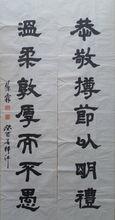 恭敬撙節以明禮
溫柔敦厚而不愚